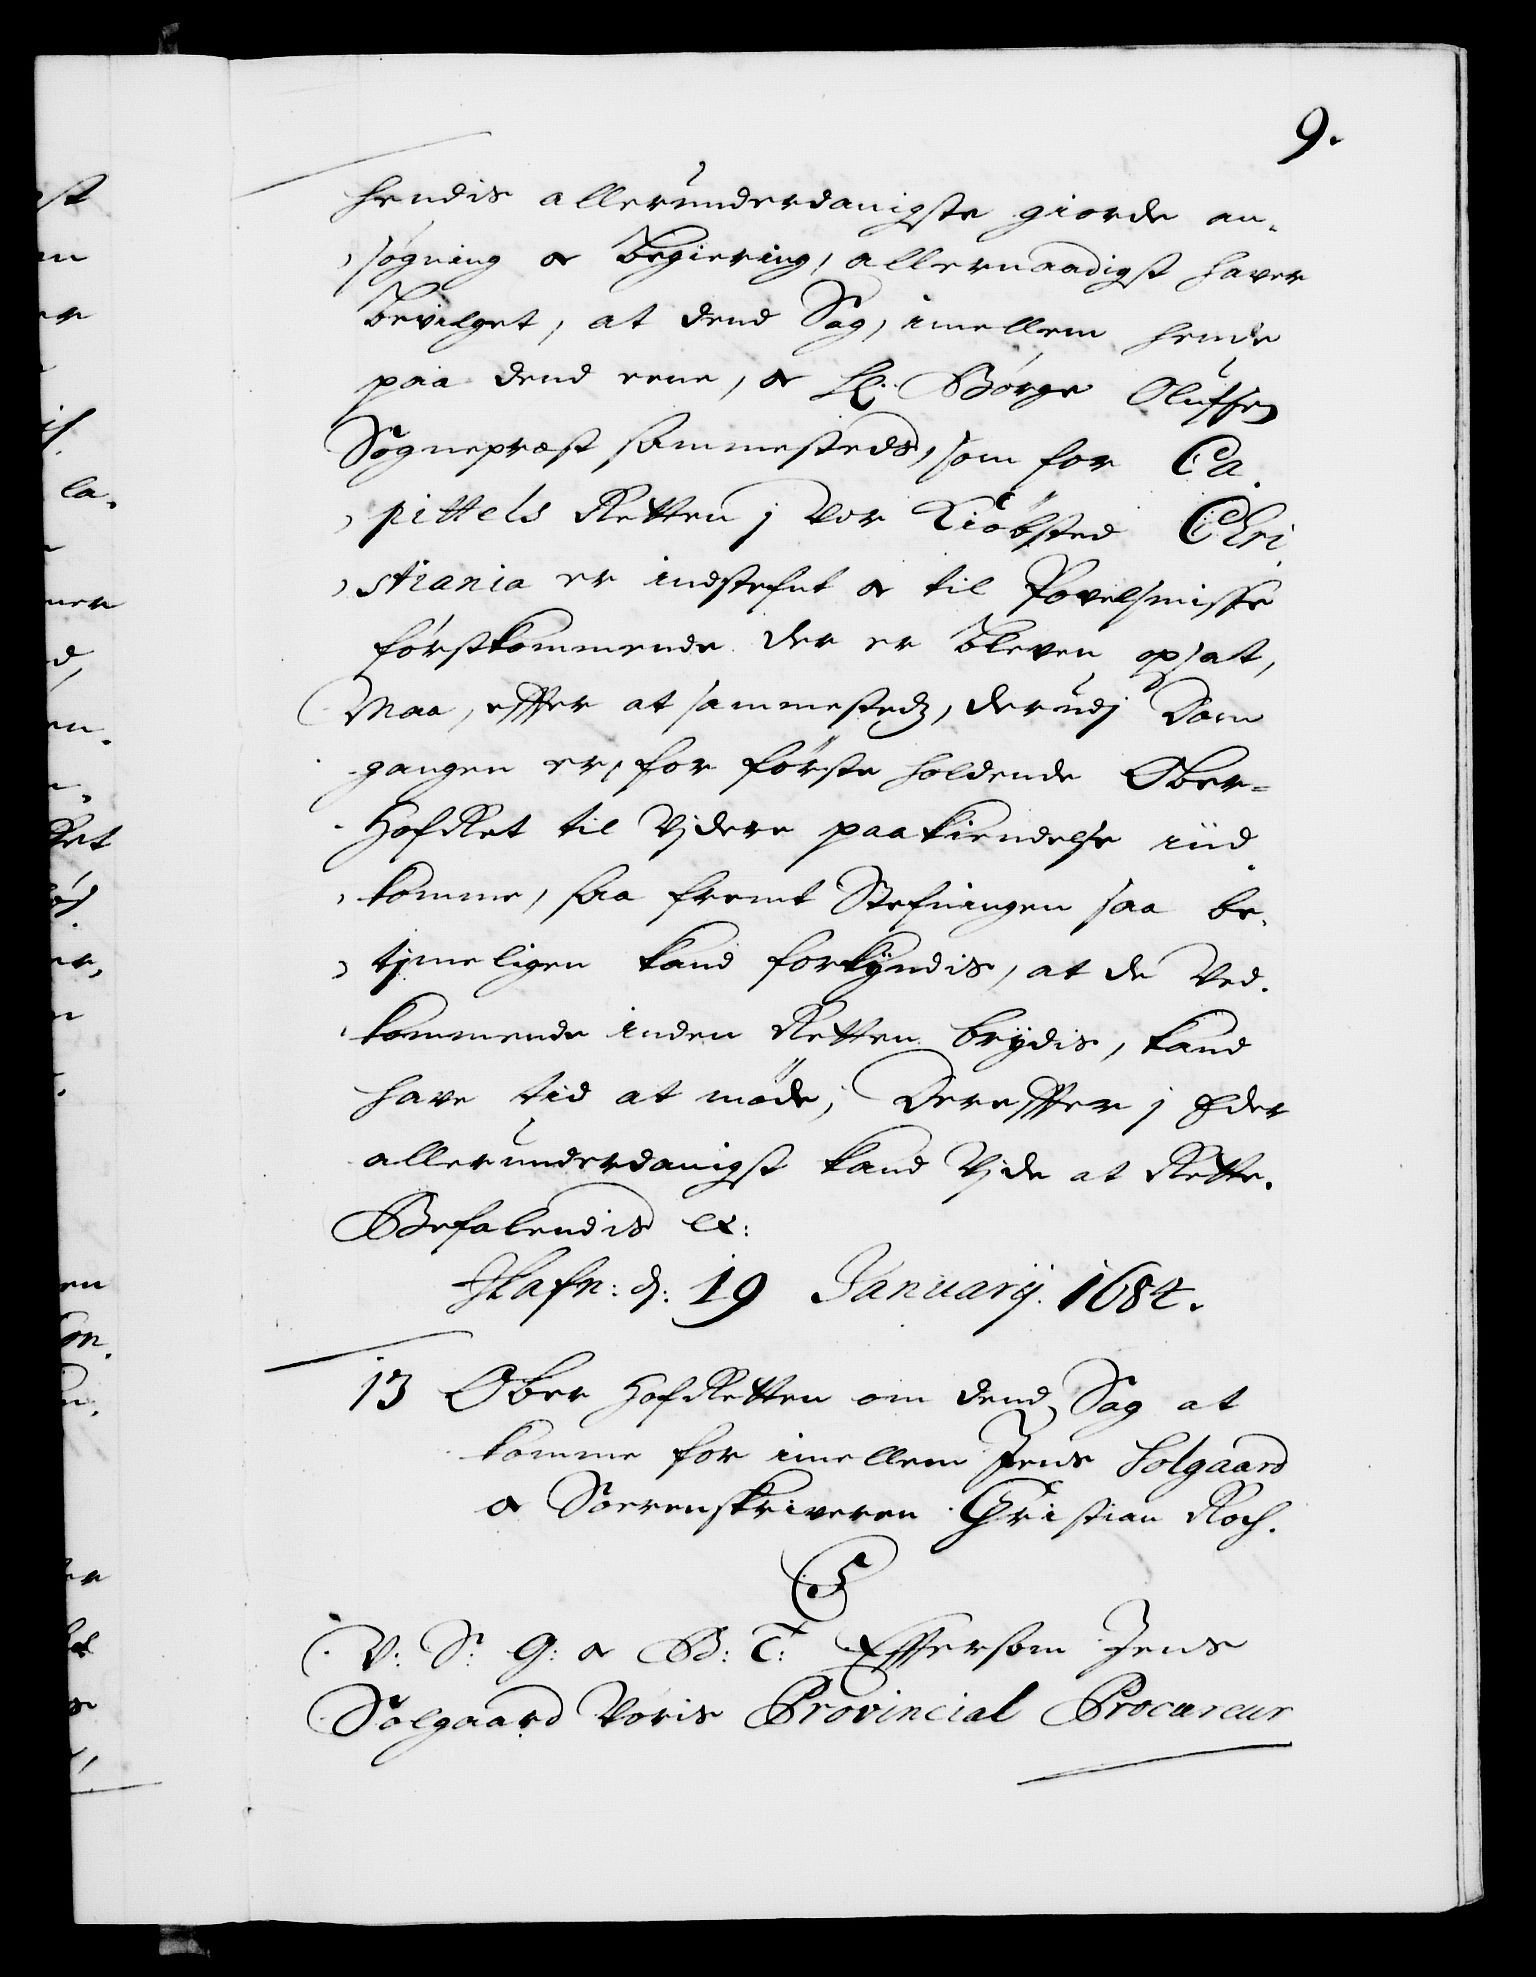 9.
hendis allerunderdanigste giorde an-
søgning oc begiering, allernaadigst haver
bevilget, at dend Sag, imellem hende
paa dend eene, oc Hr. Børge Olufsen
Sognepræst sammesteds, som for Ca-
pittels Retten j vor Kiöbsted Chri-
stiania er indstefnt oc til Povelsmisse
förstkommende der er bleven opsat,
Maa, efter at sammestedz, derudj Dom
gangen er, for förste holdende Ober-
HofRet til Vjdere paakiendelse ind-
komme, saa fremt Stefningen saa be-
tjmeligen kand forkyndis, at de Ved-
kommende inden Retten brydis, kand
have tid at møde; Derefter j Eder
allerunderdanigst kand Vjde at Rette.
Befalendis etc:
Hafn: d: 19 Januarij. 1684.
13 Ober HofRetten om dend Sag at
komme for imellem Jens Solgaard
oc Sorenskriveren Christian Roch.
C5
V: S: G: oc B: T: Eftersom Jens
Solgaard Voris Provincial Procureur
st
en
er
la-
ner
d,
en-
Ret
er,
en
on-
er